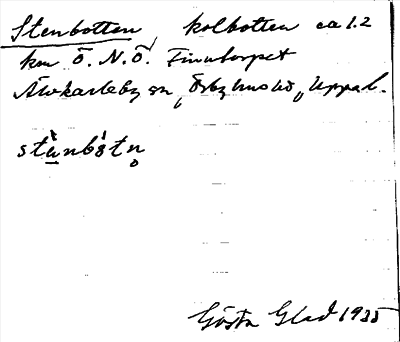 Stenbotten, kolbotten ca 1.2
km Ö. N. Ö. Finntorpet
Älvkarleby sn, Örbyhus hd, Uppsal.
stä̀nbòtn̥
Gösta Glad 1935